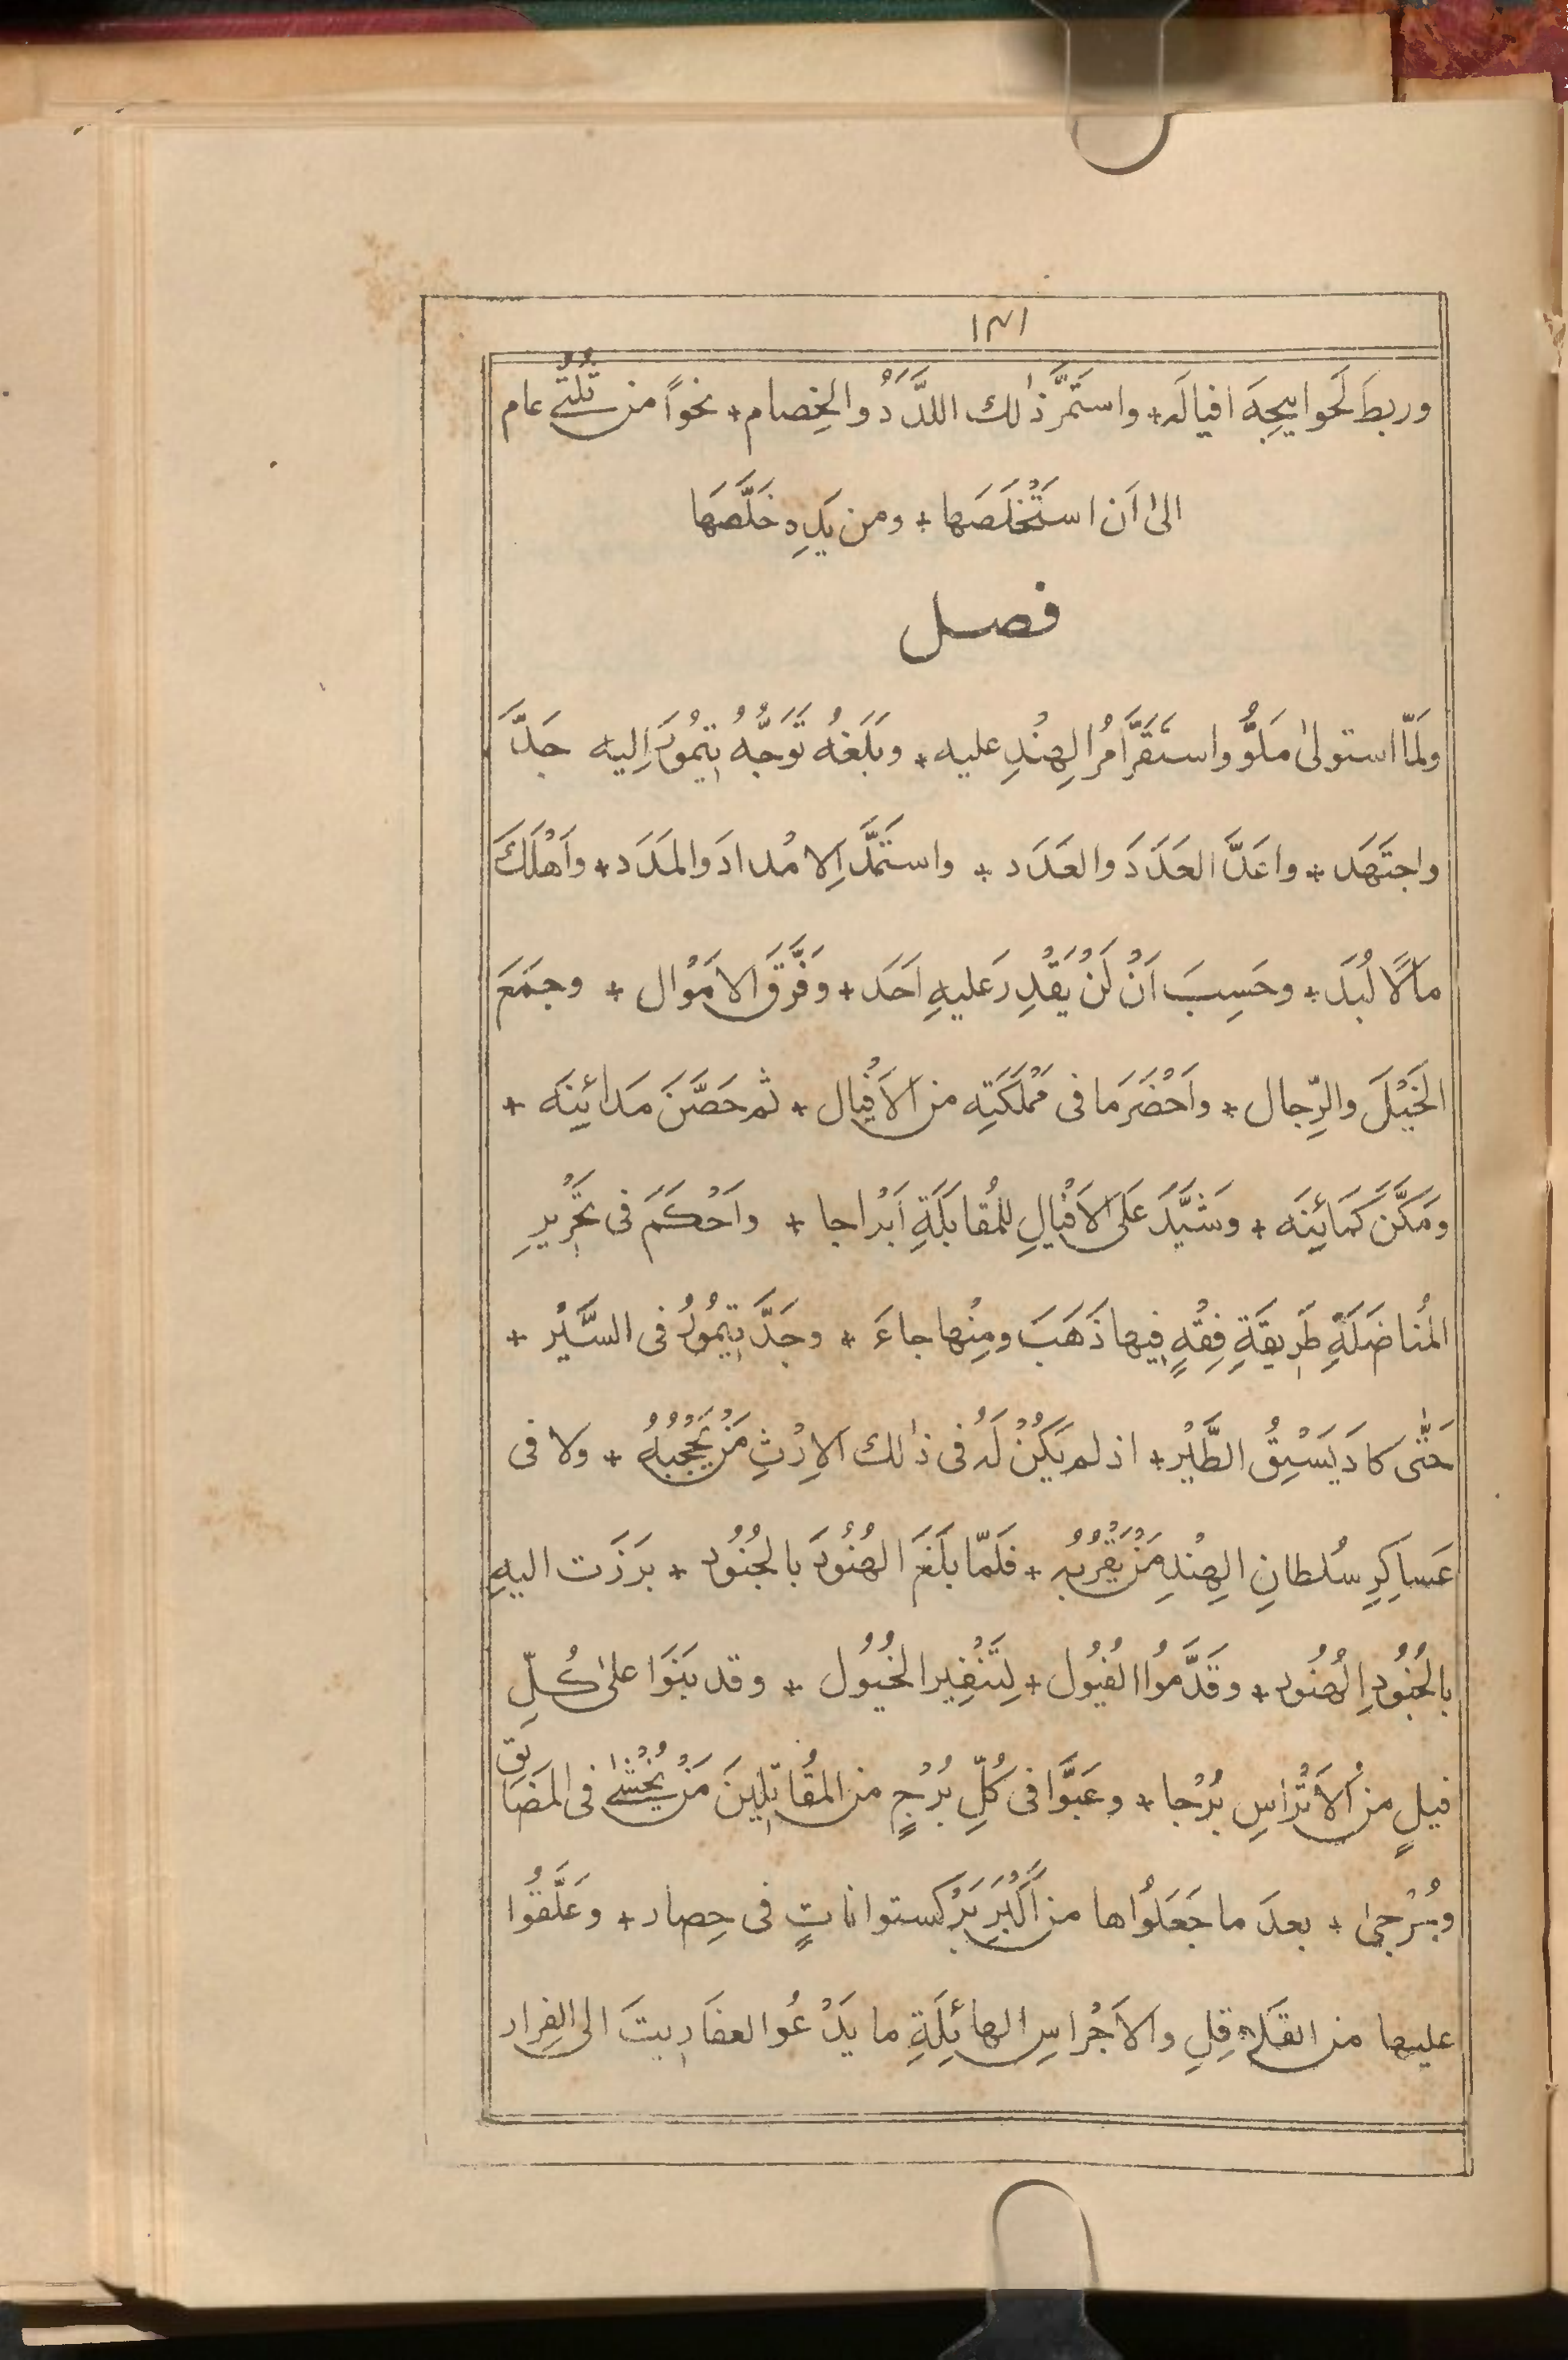 ١٣١
وربطَ لَحوابيجِهَ افيالَه + واستَمَرَّ ذٰلك اللَّدَدُ والخِصام + نحواً من ثُلثَي عام
الىٰ اَن استَخْلَصَها + ومن يَدِهِ خَلَّصَها
فصل
ولَمّا استولىٰ مَلوُّ واستَقَرَّ اَمرُ الهِنْدِ عليه + وبَلَغهُ تَوَجُّهُ تِيمُورَ اِليه جَدَّ
واجتَهَد + واعَدَّ العَدَدَ والعَدَد + واستَمَدَّ الِامْدادَ والمَدَد + واَهْلَكَ
مَالًا لُبَد + وحَسِبَ اَنْ لَنْ يَقْدِرَ عليهِ اَحَد + وفَرَّقَ الامَوْال + وجمَعَ
الخَيْلَ والرِّجال + واَحْضَرَ ما فى مَمْلَكَتِه من الاَفْيال + ثم حَصَّنَ مَدائِنَه +
ومَكَّنَ كَمائِنَه + وشَيَّدَ عَلَى الاَفْيالِ للمُقابَلَةِ اَبْراجا + واَحْكَمَ فى تحَرْيرِ
المُناضَلَةِ طَرِيقَةِ فِقْهٍ فِيها ذَهَبَ ومِنْها جاءَ + وجَدَّ تِيمُورُ فى السَّيْر +
حَتّٰى كادَ يَسْبِقُ الطَّيْر + اذ لم يَكُنْ لَهُ فى ذٰلك الاِرْثِ مَنْ يَحْجُبُهُ + ولا فى
عَساكِرِ سُلطانِ الهِنْدِ مَنْ يَقْرُبُه + فَلَمّا بَلَغَ الهُنُودَ بالجُنُود + بَرَزَت اليهِ
بالجُنُودِ الهُنُود + وقَدَّمُوا الفُيُول + لِتَنْفِيرِ الخُيُول + وقد بَنَوَا علىٰ كُلِّ
فيلٍ من الاَتْراسِ بُرْجا + وعَبَّوْا فى كُلِّ بُرْجٍ من المقُاتِلِينَ مَنْ يُخْشىٰ فى المَضَايَقِ
ويُرْجىٰ + بعدَ ما جَعَلُواها من اَكْبَرِ بَرْكستواناتٍ فى حِصار + وعَلَّقُوا
عليها من القَلاقِلِ والاَجْراسِ الهائِلَةِ ما يَدْعُو العفَارِيتَ الى الفِرار